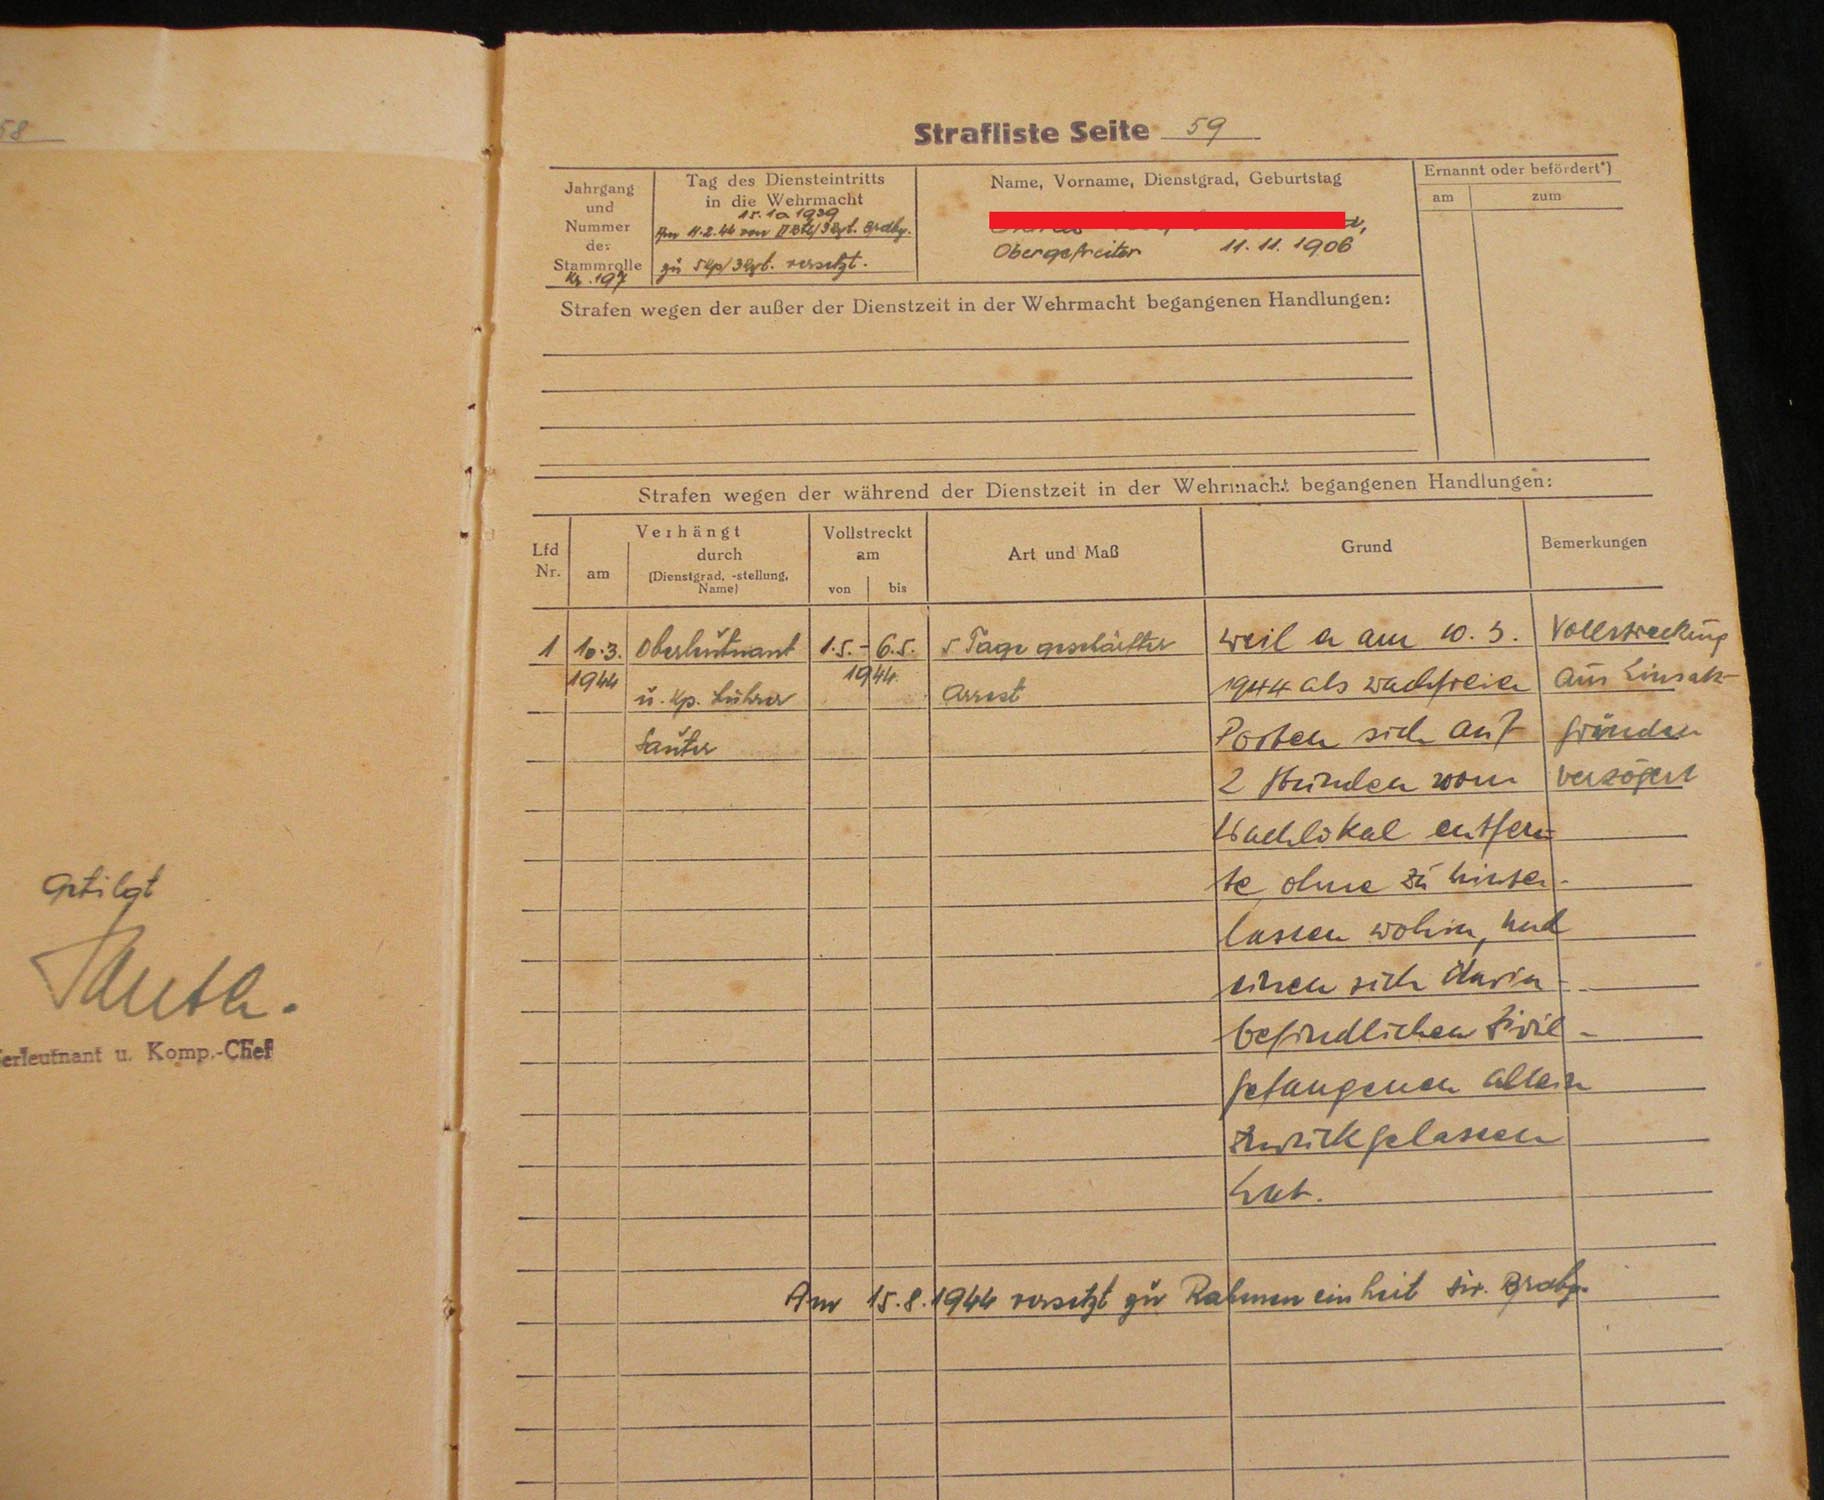 58
getilgt
Sauter.
erleutnant u. Komp.-Chef
Strafliste Seite 59
Jahrgang
und
Nummer
der
Stammrolle
Nr. 197
Tag des Diensteintritts
in die Wehrmacht
15.10.1939
Am 11.2.44 von Brdbg.
zu 5Kp/3Rgt. versetzt.
Name, Vorname, Dienstgrad, Geburtstag
Obergefreiter 11.11.1906
Ernannt oder befördert*)
am zum
Strafen wegen der außer der Dienstzeit in der Wehrmacht begangenen Handlungen:
Strafen wegen der während der Dienstzeit in der Wehrmacht begangenen Handlungen:
Lfd
Nr.
Verhängt
am
durch
(Dienstgrad, -stellung,
Name)
Vollstreckt
am
von bis
Art und Maß
Grund
Bemerkungen
1 10.3.
1944
Oberleutnant
u. Kp. Führer
Sauter
1.5. - 6.5.
1944
5 Tage geschärfter
Arrest
weil er am 10.3.
1944 als wachfreier
Posten sich auf
2 Stunden vom
Wachlokal entfern=
te, ohne zu hinter-
lassen wohin, und
einen sich darin-
befindlichen Zivil-
gefangenen allein
zurückgelassen
hat.
Vollstreckung
aus Einsatz-
gründen
verzögert
Am 15.8.1944 versetzt zur Rahmeneinheit Div. Brdbg.